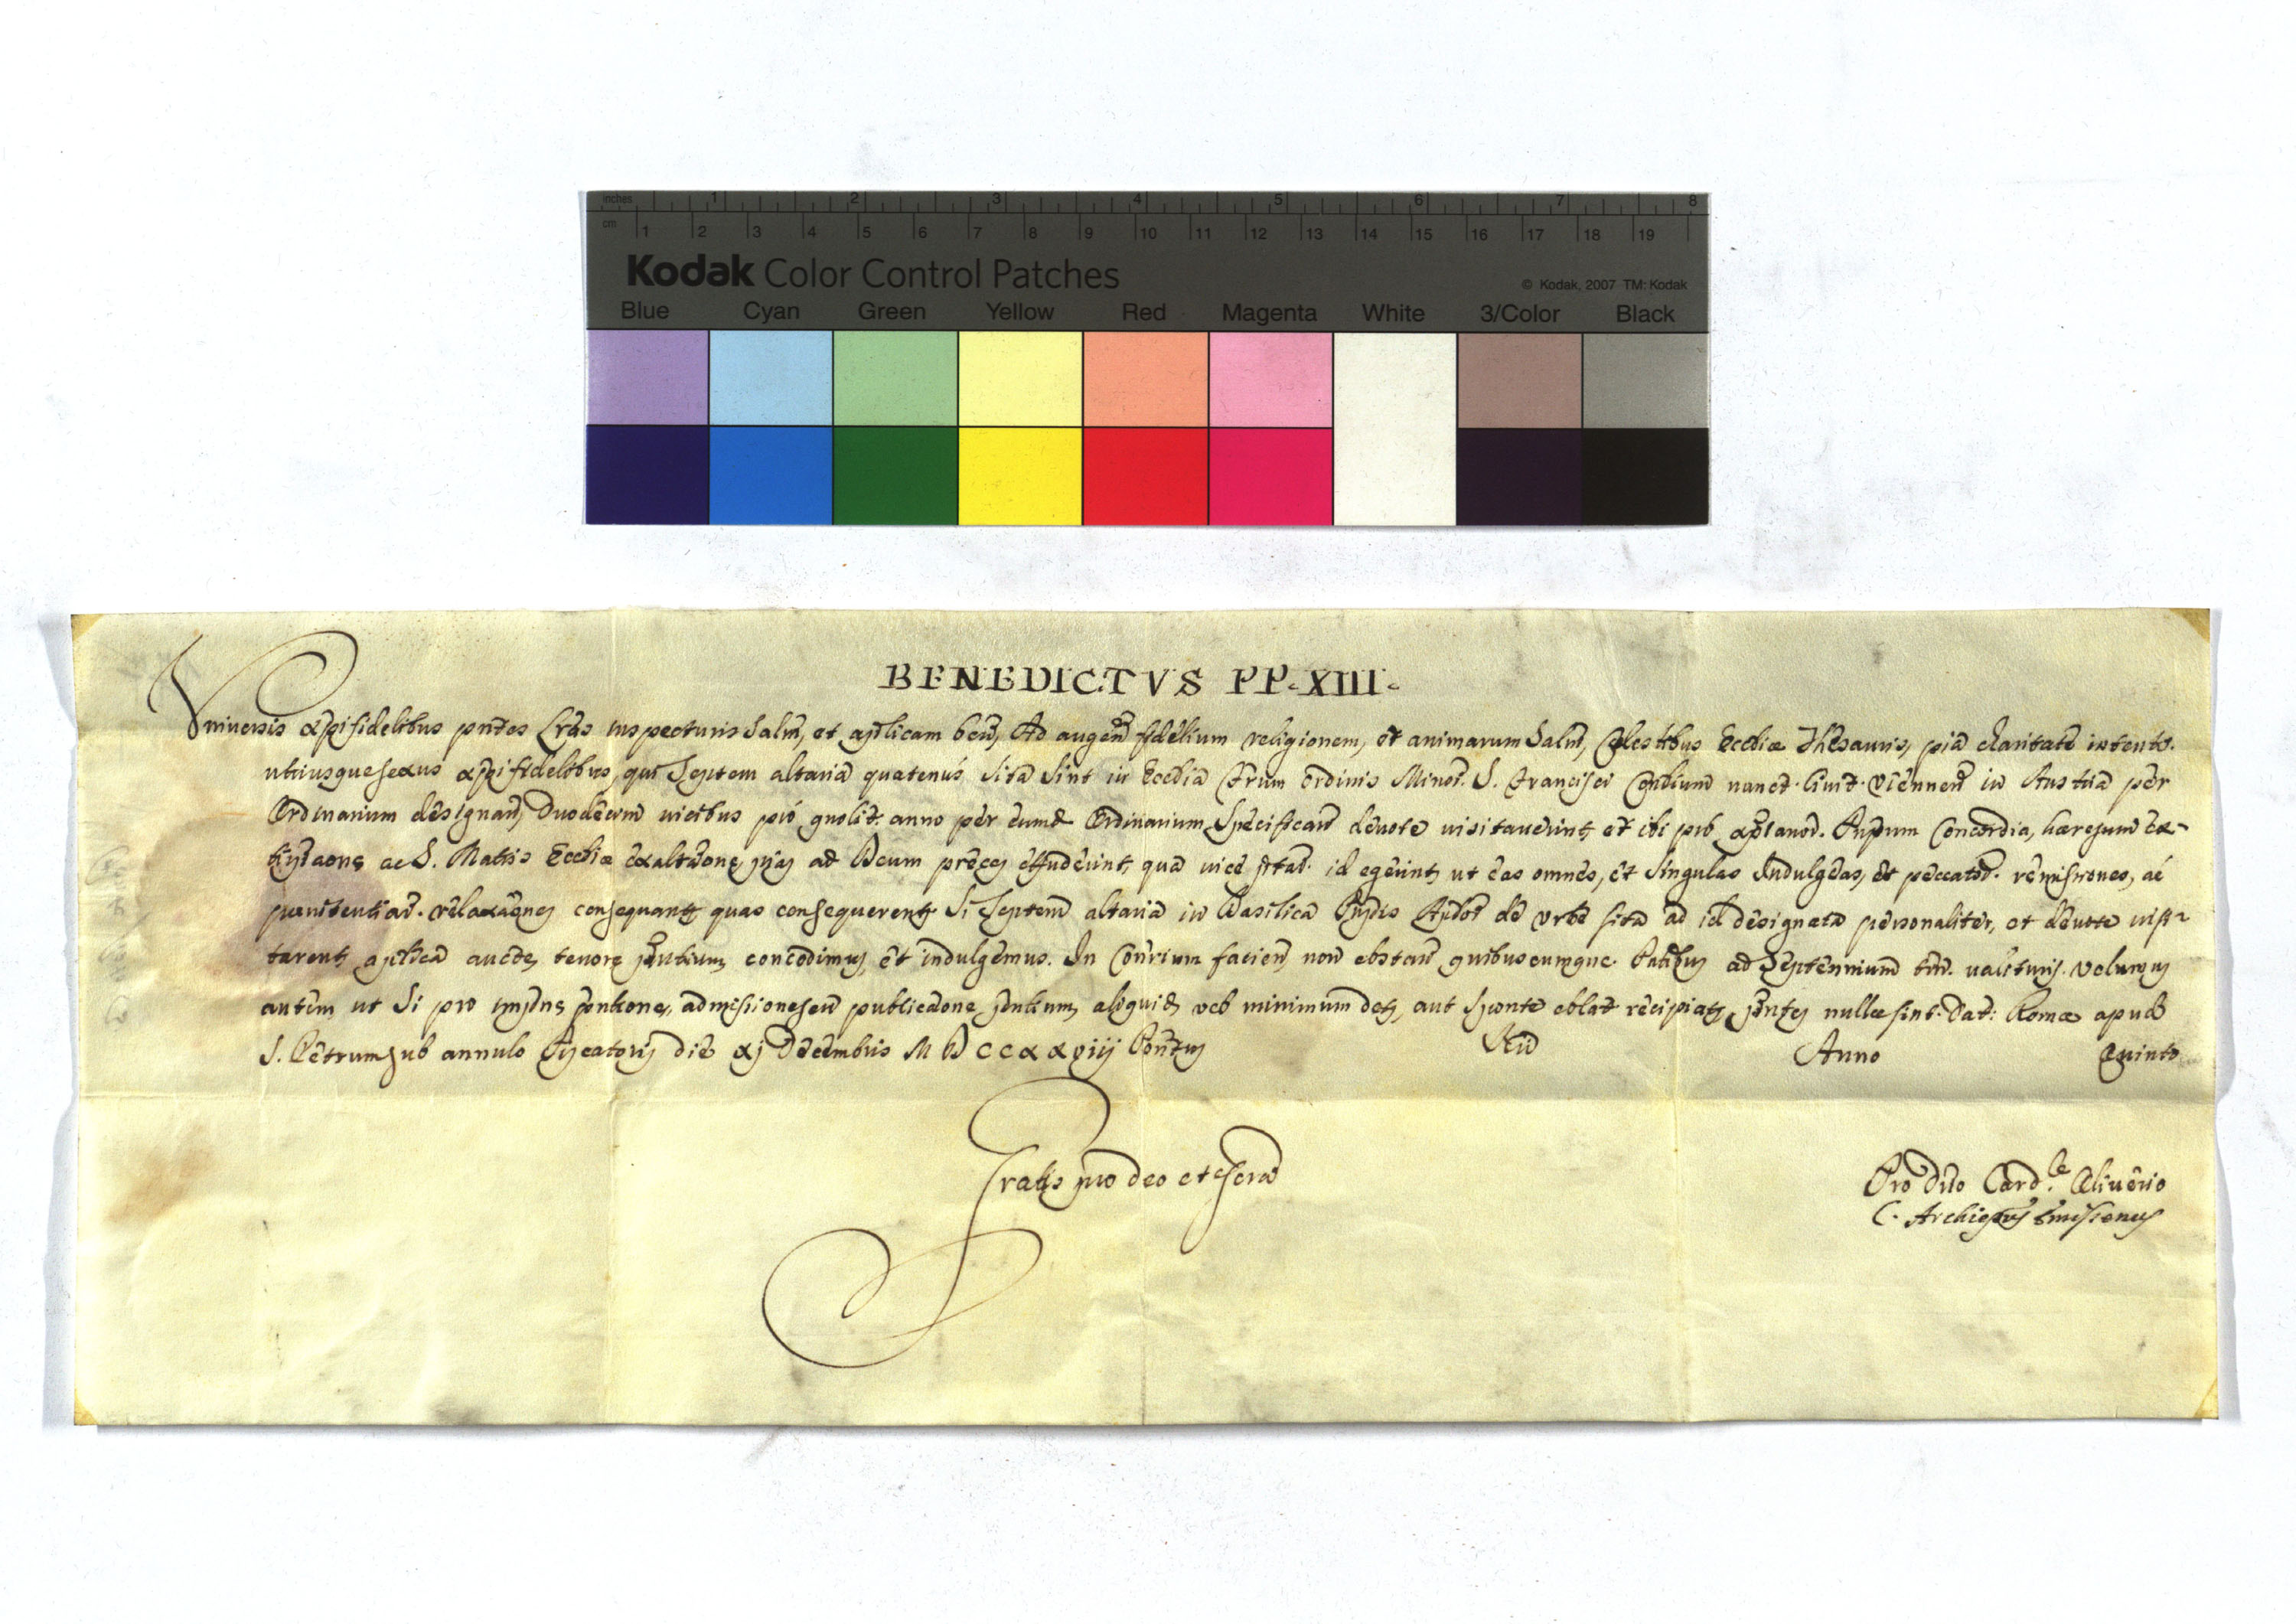 inches 1 2 3 4 5 6 7 8
cm 1 2 3 4 5 6 7 8 9 10 11 12 13 14 15 16 17 18 19
Kodak Color Control Patches
© Kodak, 2007 TM: Kodak
Blue Cyan Green Yellow Red Magenta White 3/Color Black
BENEDICTVS PP. XIII.
Vniversis Xpifidelibus pntes Lras inspecturis Saltm, et aplicam ben, Ad augend fidelium religionem, et animarum Saltm, Celestibus Ecclie Thesauris, pia charitate intenti.
utriusque sexus Xpifidelibus, qui Septem altaria quatenus sita sint in Ecclia Frum Ordinis Minor. S. Francisci Civit. Viennen in Austria per
Ordinarium designand, Duodecim vicibus pio quolit anno per eumd Ordinarium Specificand devote visitaverint, et ibi pro Xpianor. Pnpum Concordia, haeresum ex-
tirpaone ac S. Matris Ecclie exaltaone, pias ad Deum preces effuderint, qua vice id egerint, ut eas omnes, et singulas Indulgeas, et peccator. remissiones, ac
penitentiar. relaxaones consequantr quas consequerentr si Septem altaria in Basilica Pnpis Aplor de Urbe sita ad id designata personaliter, et devote visi-
tarent, aplica aucte, tenore pntium concedimus, et indulgemus. In Conrium facien non obstan quibuscumque. Pntibus ad Septennium tm. valituris. Volumus
autem ut si pro impne pntione, admissione seu publicaone pntium, aliquid vel minimum detr, aut sponte oblat recipiatr, pntes nulle sint. Dat: Rome apud
S. Petrum sub annulo Piscatoris die xj Decembris MDCCXXVIIJ Pontus Nri Anno Quinto
Gratis pro deo et Scra
Pro Dno Card.le Oliverio
C. Archiepus Emissenus